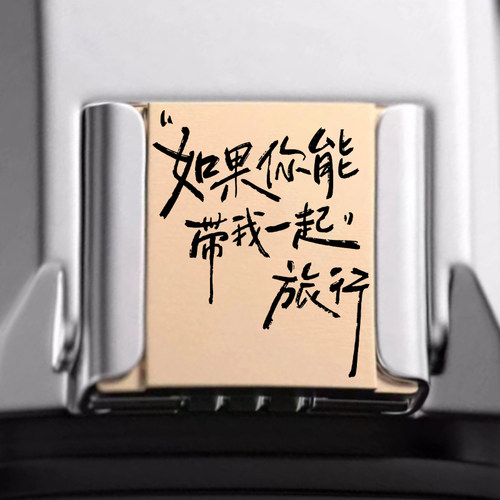 “如果你能
带我一起”
旅行